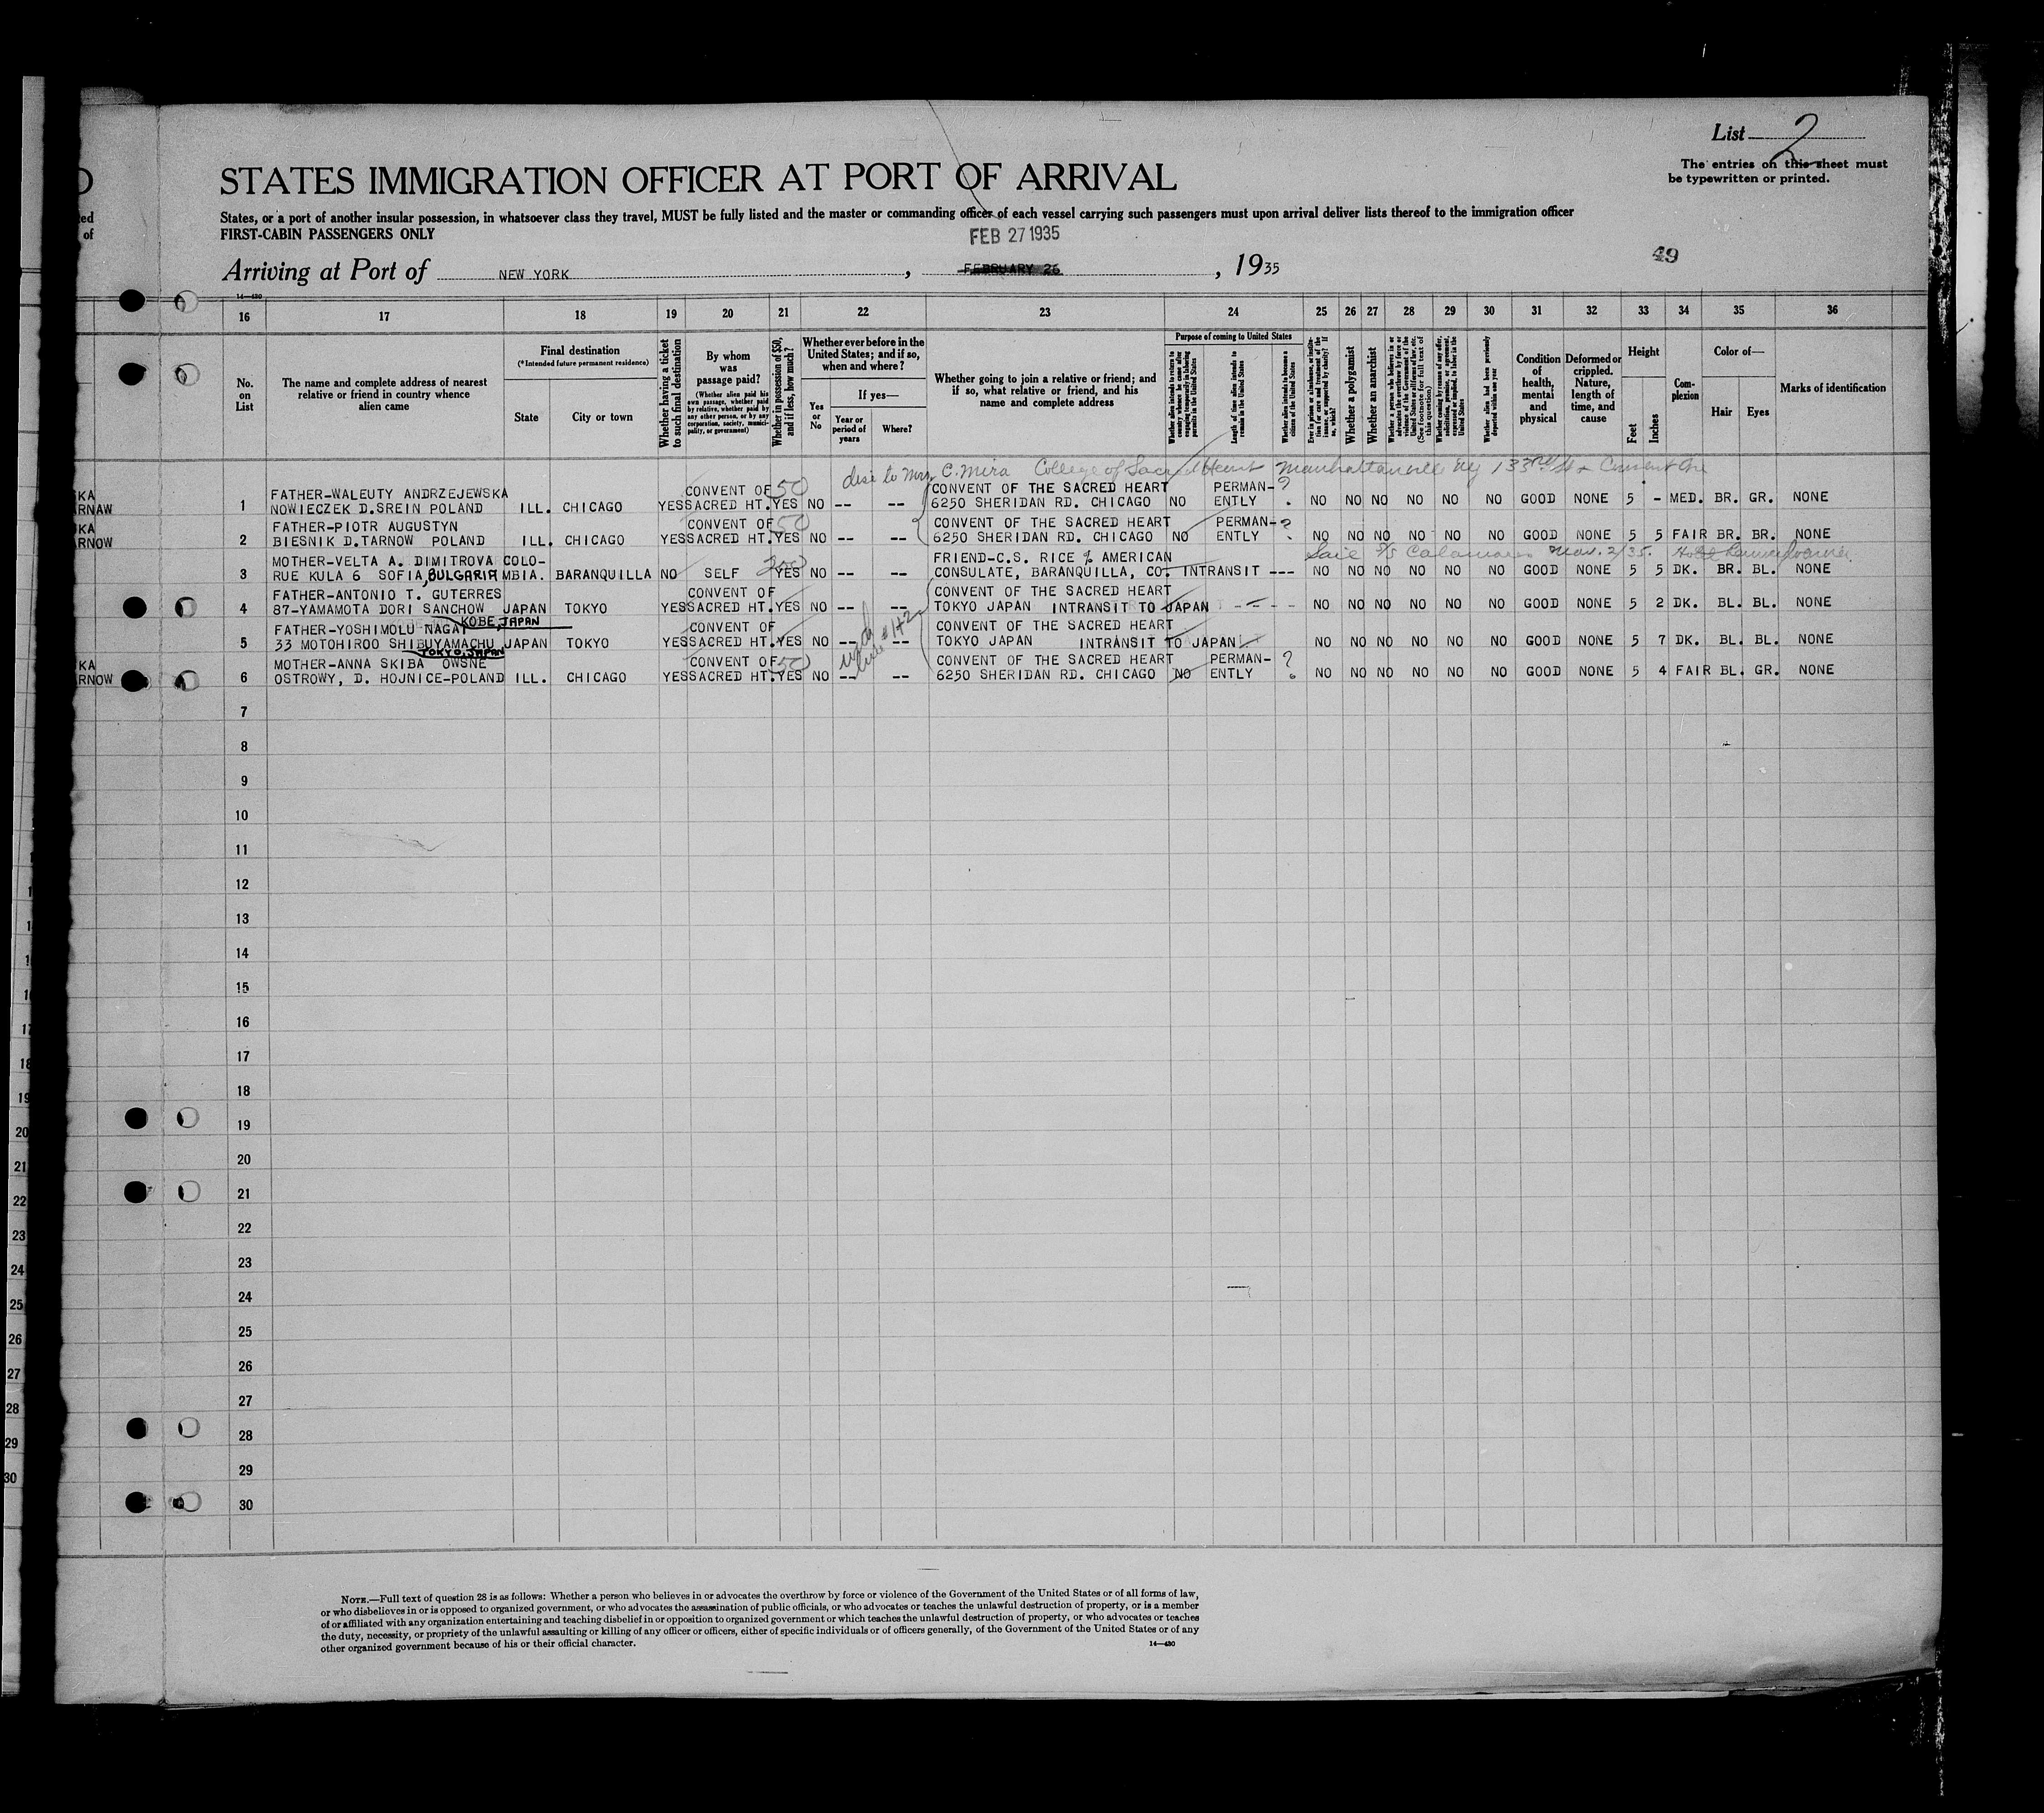 List 2
The entries on this sheet must
be typewritten or printed.
STATES IMMIGRATION OFFICER AT PORT OF ARRIVAL
States, or a port of another insular possession, in whatsoever class they travel, MUST be fully listed and the master or commanding officer of each vessel carrying such passengers must upon arrival deliver lists thereof to the immigration officer
FIRST-CABIN PASSENGERS ONLY
FEB 27 1935
Arriving at Port of NEW YORK, FEBRUARY 26, 1935
49
14—430
16 17 18 19 20 21 22 23 24 25 26 27 28 29 30 31 32 33 34 35 36
No. on List
The name and complete address of nearest relative or friend in country whence alien came
Final destination
(*Intended future permanent residence)
State
City or town
Whether having a ticket to such final destination
By whom was passage paid?
(Whether alien paid his own passage, whether paid by relative, whether paid by any other person, or by any corporation, society, municipality, or government)
Whether in possession of $50, and if less, how much?
Whether ever before in the United States; and if so, when and where?
Yes or No
If yes—
Year or period of years
Where?
Whether going to join a relative or friend; and if so, what relative or friend, and his name and complete address
Purpose of coming to United States
Whether alien intends to return to country whence he came after engaging temporarily in laboring pursuits in the United States
Length of time alien intends to remain in the United States
Whether alien intends to become a citizen of the United States
Whether a polygamist
Whether an anarchist
Whether alien had been previously deported within one year
Condition of health, mental and physical
Deformed or crippled. Nature, length of time, and cause
Height
Feet
Inches
Complexion
Color of—
Hair
Eyes
Marks of identification
C. Mira College of Sacred Heart Manhattanville NY 133rd St & Convent Ave
KA
RNAW
1 FATHER-WALEUTY ANDRZEJEWSKA CONVENT OF 50 CONVENT OF THE SACRED HEART PERMAN- ?
NOWIECZEK D.SREIN POLAND ILL. CHICAGO YES SACRED HT. YES NO -- -- 6250 SHERIDAN RD. CHICAGO NO ENTLY NO NO NO NO NO NO GOOD NONE 5 - MED. BR. GR. NONE
KA
RNOW
2 FATHER-PIOTR AUGUSTYN CONVENT OF 50 CONVENT OF THE SACRED HEART PERMAN- ?
BIESNIK D.TARNOW POLAND ILL. CHICAGO YES SACRED HT. YES NO -- -- 6250 SHERIDAN RD. CHICAGO NO ENTLY NO NO NO NO NO NO GOOD NONE 5 5 FAIR BR. BR. NONE
S/S Calamares Mar. 2/35. Hotel
3 MOTHER-VELTA A. DIMITROVA COLO- 200 FRIEND-C.S. RICE % AMERICAN
RUE KULA 6 SOFIA, BULGARIA MBIA. BARANQUILLA NO SELF YES NO -- -- CONSULATE, BARANQUILLA, CO. INTRANSIT --- NO NO NO NO NO NO GOOD NONE 5 5 DK. BR. BL. NONE
4 FATHER-ANTONIO T. GUTERRES CONVENT OF CONVENT OF THE SACRED HEART
87-YAMAMOTA DORI SANCHOW JAPAN TOKYO YES SACRED HT. YES NO -- -- TOKYO JAPAN INTRANSIT TO JAPAN - - - NO NO NO NO NO NO GOOD NONE 5 2 DK. BL. BL. NONE
KOBE, JAPAN
5 FATHER-YOSHIMOLU NAGAI CONVENT OF CONVENT OF THE SACRED HEART
33 MOTOHIROO SHIBUYAMACHU JAPAN TOKYO YES SACRED HT. YES NO -- -- TOKYO JAPAN INTRANSIT TO JAPAN NO NO NO NO NO NO GOOD NONE 5 7 DK. BL. BL. NONE
TOKYO, JAPAN
KA
RNOW
6 MOTHER-ANNA SKIBA OWSNE CONVENT OF 50 CONVENT OF THE SACRED HEART PERMAN- ?
OSTROWY, D. HOJNICE-POLAND ILL. CHICAGO YES SACRED HT. YES NO -- -- 6250 SHERIDAN RD. CHICAGO NO ENTLY NO NO NO NO NO NO GOOD NONE 5 4 FAIR BL. GR. NONE
7
8
9
10
11
12
13
14
15
16
17
18
19
20
21
22
23
24
25
26
27
28
29
30
NOTE.—Full text of question 28 is as follows: Whether a person who believes in or advocates the overthrow by force or violence of the Government of the United States or of all forms of law,
or who disbelieves in or is opposed to organized government, or who advocates the assassination of public officials, or who advocates or teaches the unlawful destruction of property, or is a member
of or affiliated with any organization entertaining and teaching disbelief in or opposition to organized government or which teaches the unlawful destruction of property, or who advocates or teaches
the duty, necessity, or propriety of the unlawful assaulting or killing of any officer or officers, either of specific individuals or of officers generally, of the Government of the United States or of any
other organized government because of his or their official character.
14—430